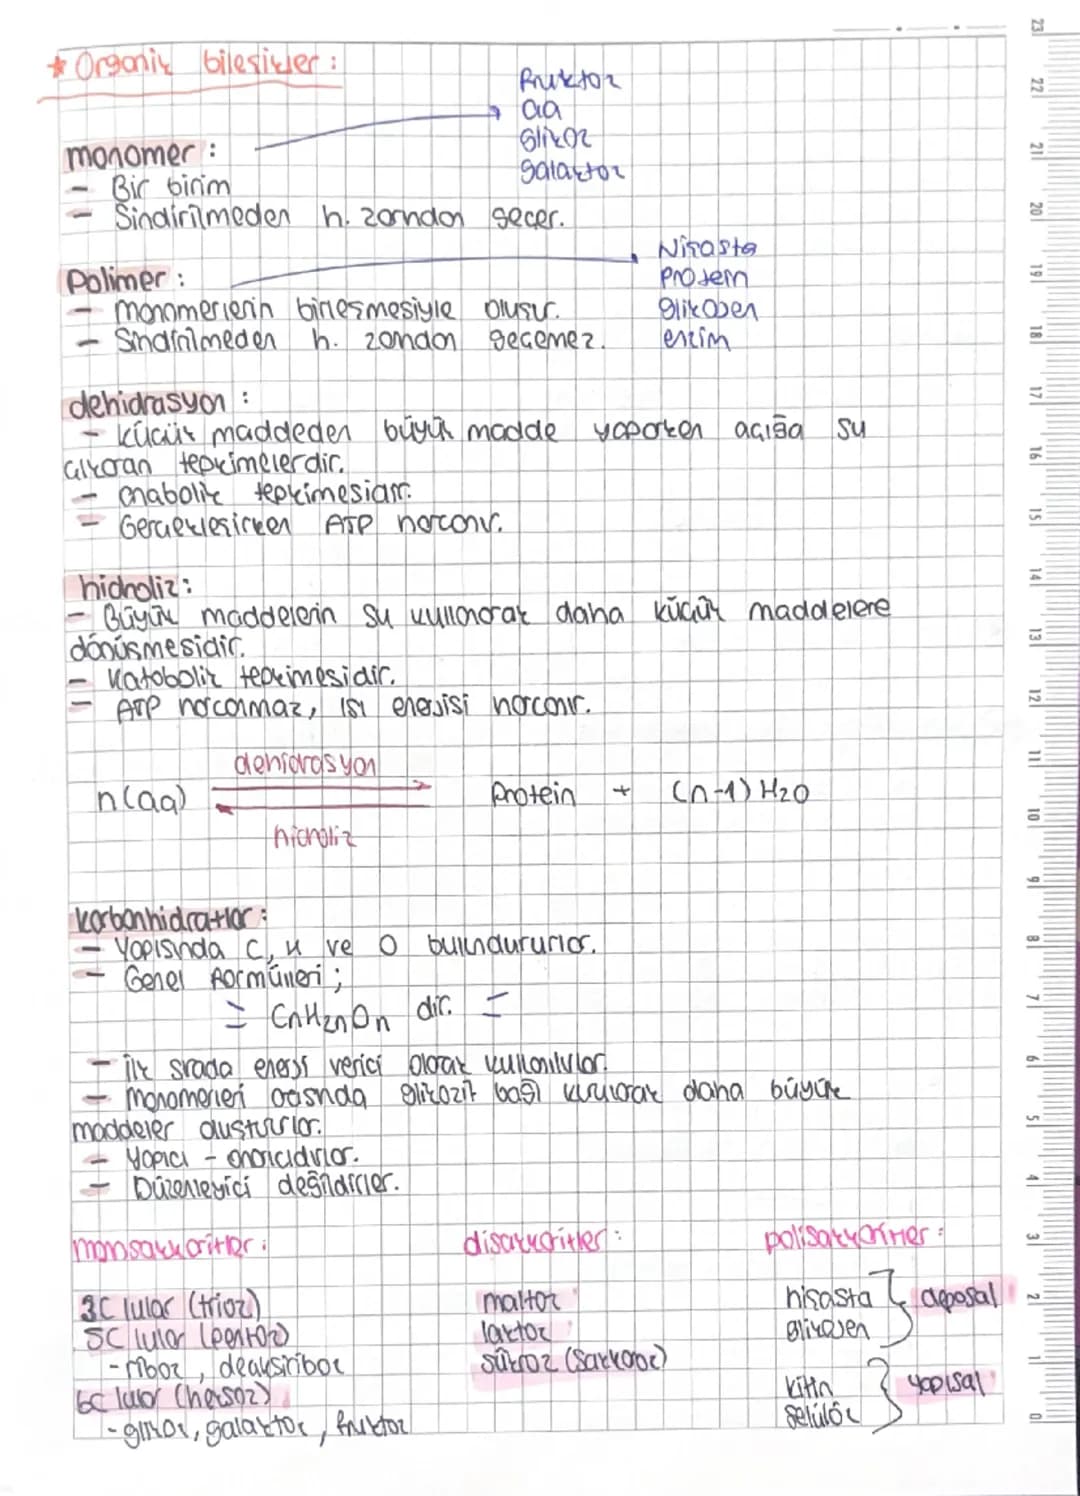 ★ Organik bileşikler :
monomer :
fruktoz
aa
glikoz
galaktoz
- Bir birim
- Sindirilmeden h. zarından geçer.
Polimer :
Nişasta
Protein
glikojen
enzim
- monomerlerin birleşmesiyle oluşur.
- Sindirilmeden h. zarından geçemez.
dehidrasyon :
- küçük maddeden büyük madde yaparken açığa su
çıkaran tepkimelerdir.
- anabolik tepkimesidir.
- Gerçekleşirken ATP harcanır.
hidroliz :
- Büyük maddelerin su kullanarak daha küçük maddelere
dönüşmesidir.
- Katabolik tepkimesidir.
- ATP harcanmaz, ısı enerjisi harcanır.
dehidrasyon
n(aa) Protein + (n-1) H2O
hidroliz
karbonhidratlar :
- Yapısında C, H ve O bulundururlar.
- Genel formülleri ;
= CnH2nOn dir. =
- ilk sırada enerji verici olarak kullanılırlar.
- monomerleri arasında glikozit bağı kurularak daha büyük
maddeler oluştururlar.
- yapıcı - onarıcıdırlar.
- Düzenleyici değildirler.
monosakkaritler :
3C lular (trioz)
5C lular (pentoz)
- riboz , deoksiriboz
6C lular (heksoz)
- glikoz, galaktoz , fruktoz
disakkaritler :
maltoz
laktoz
sükroz (Sakkaroz)
polisakkaritler :
nişasta
glikojen
deposal
kitin
selüloz
yapısal
23
22
21
20
19
18
17
16
15
14
13
12
11
10
9
8
7
6
5
4
3
2
1
0